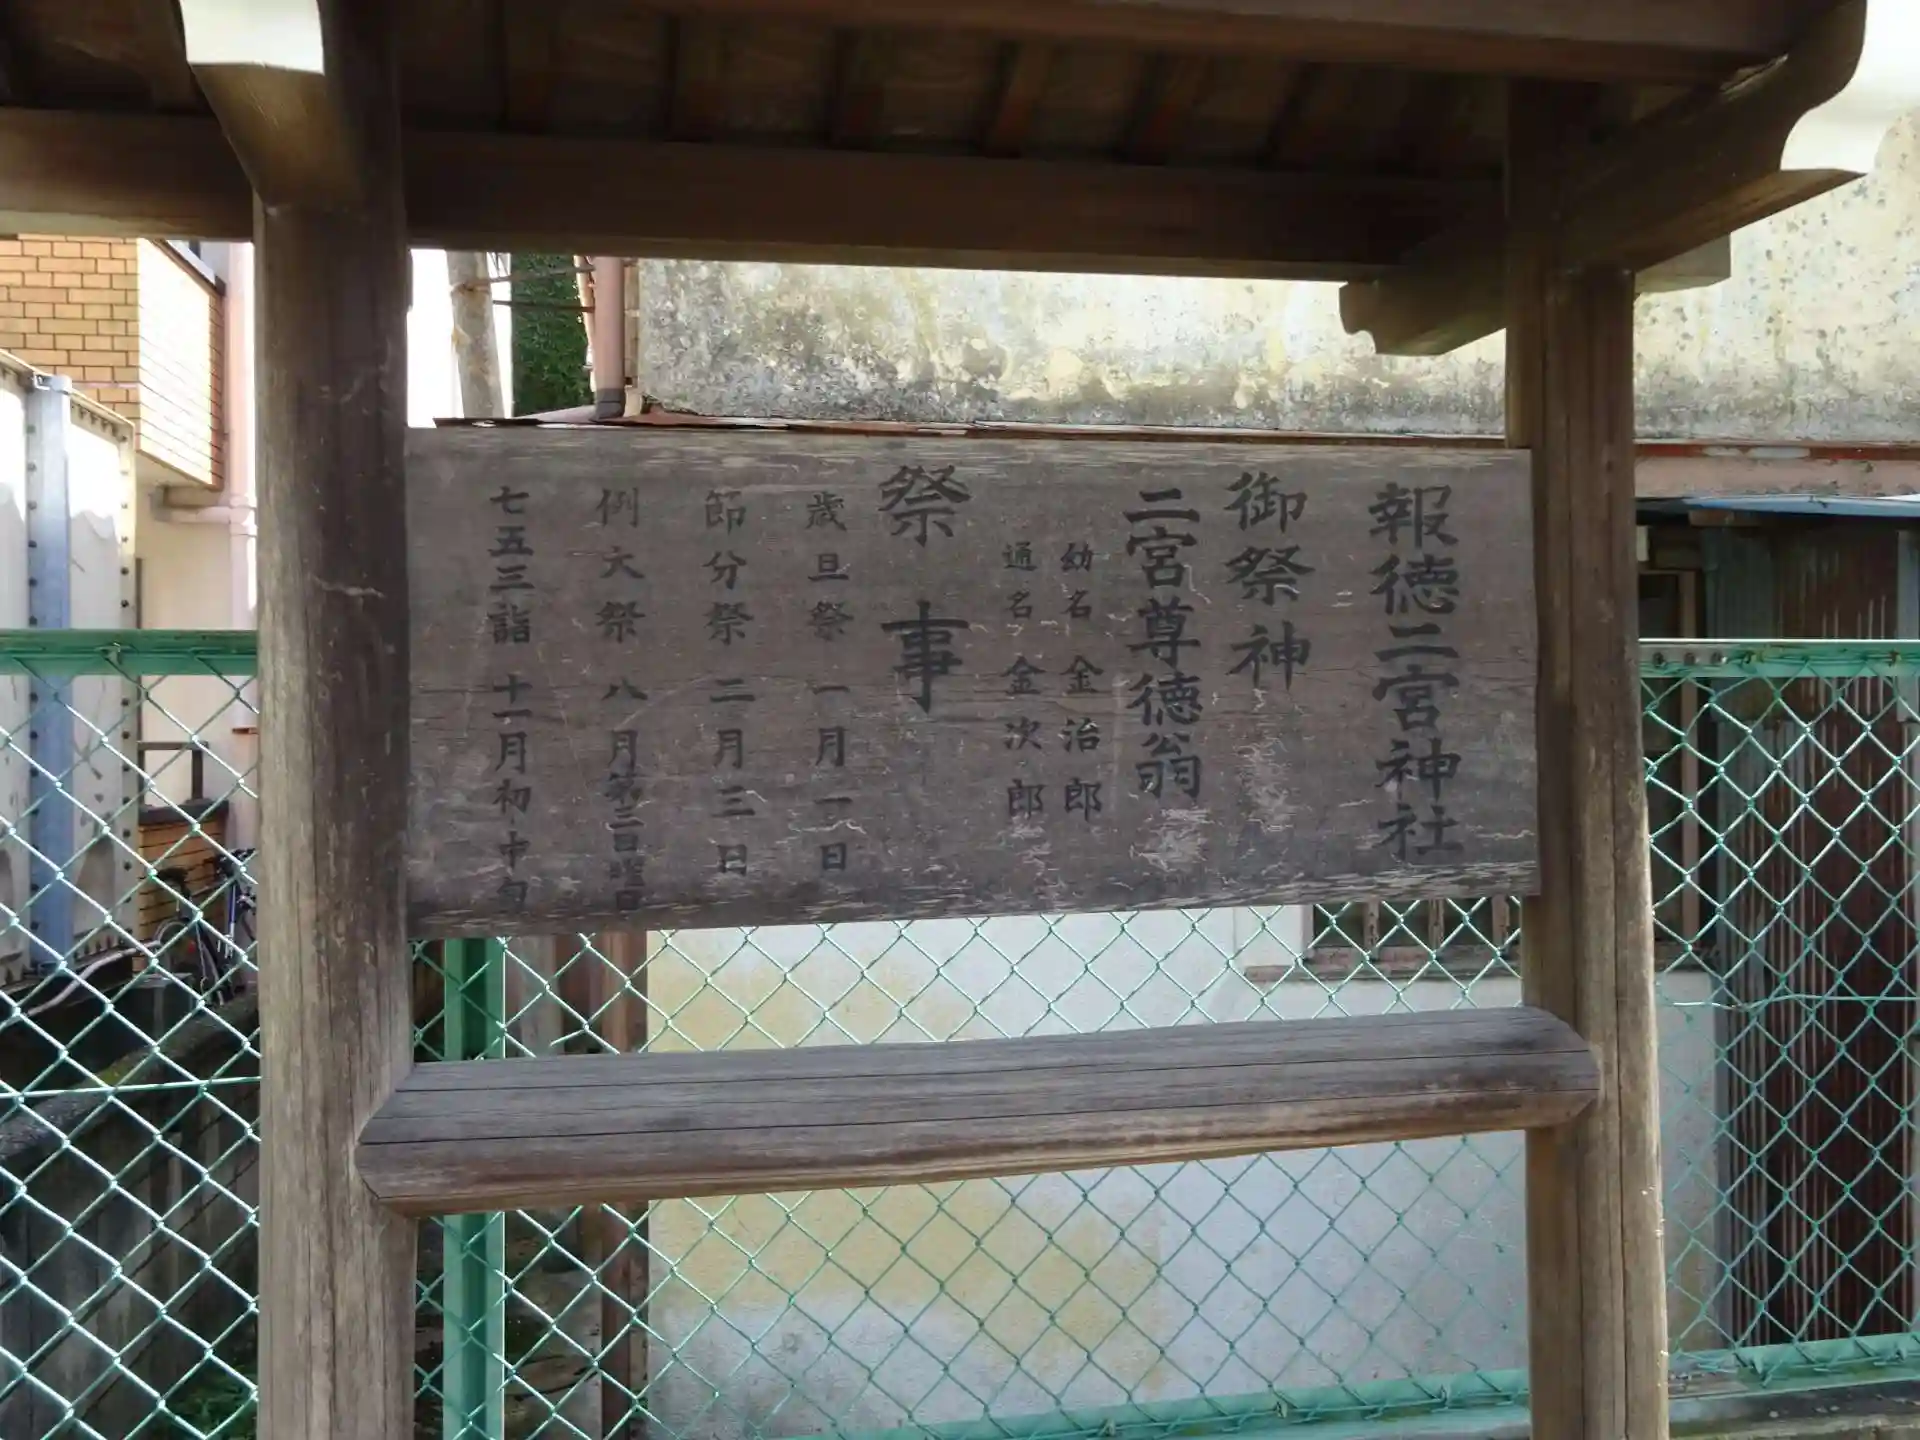 報徳二宮神社
御祭神
二宮尊徳翁
幼名 金治郎
通名 金次郎
祭事
歳旦祭 一月一日
節分祭 二月三日
例大祭 八月第三日曜日
七五三詣 十一月初・中旬